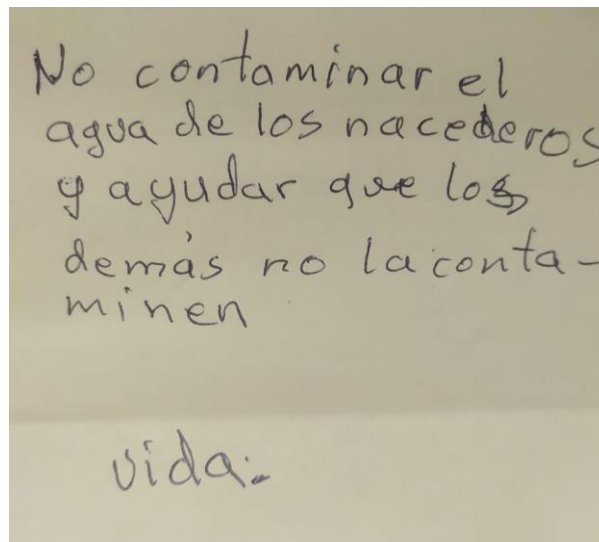 No contaminar el
agua de los nacederos
y ayudar que los
demás no la conta-
minen
vida.-